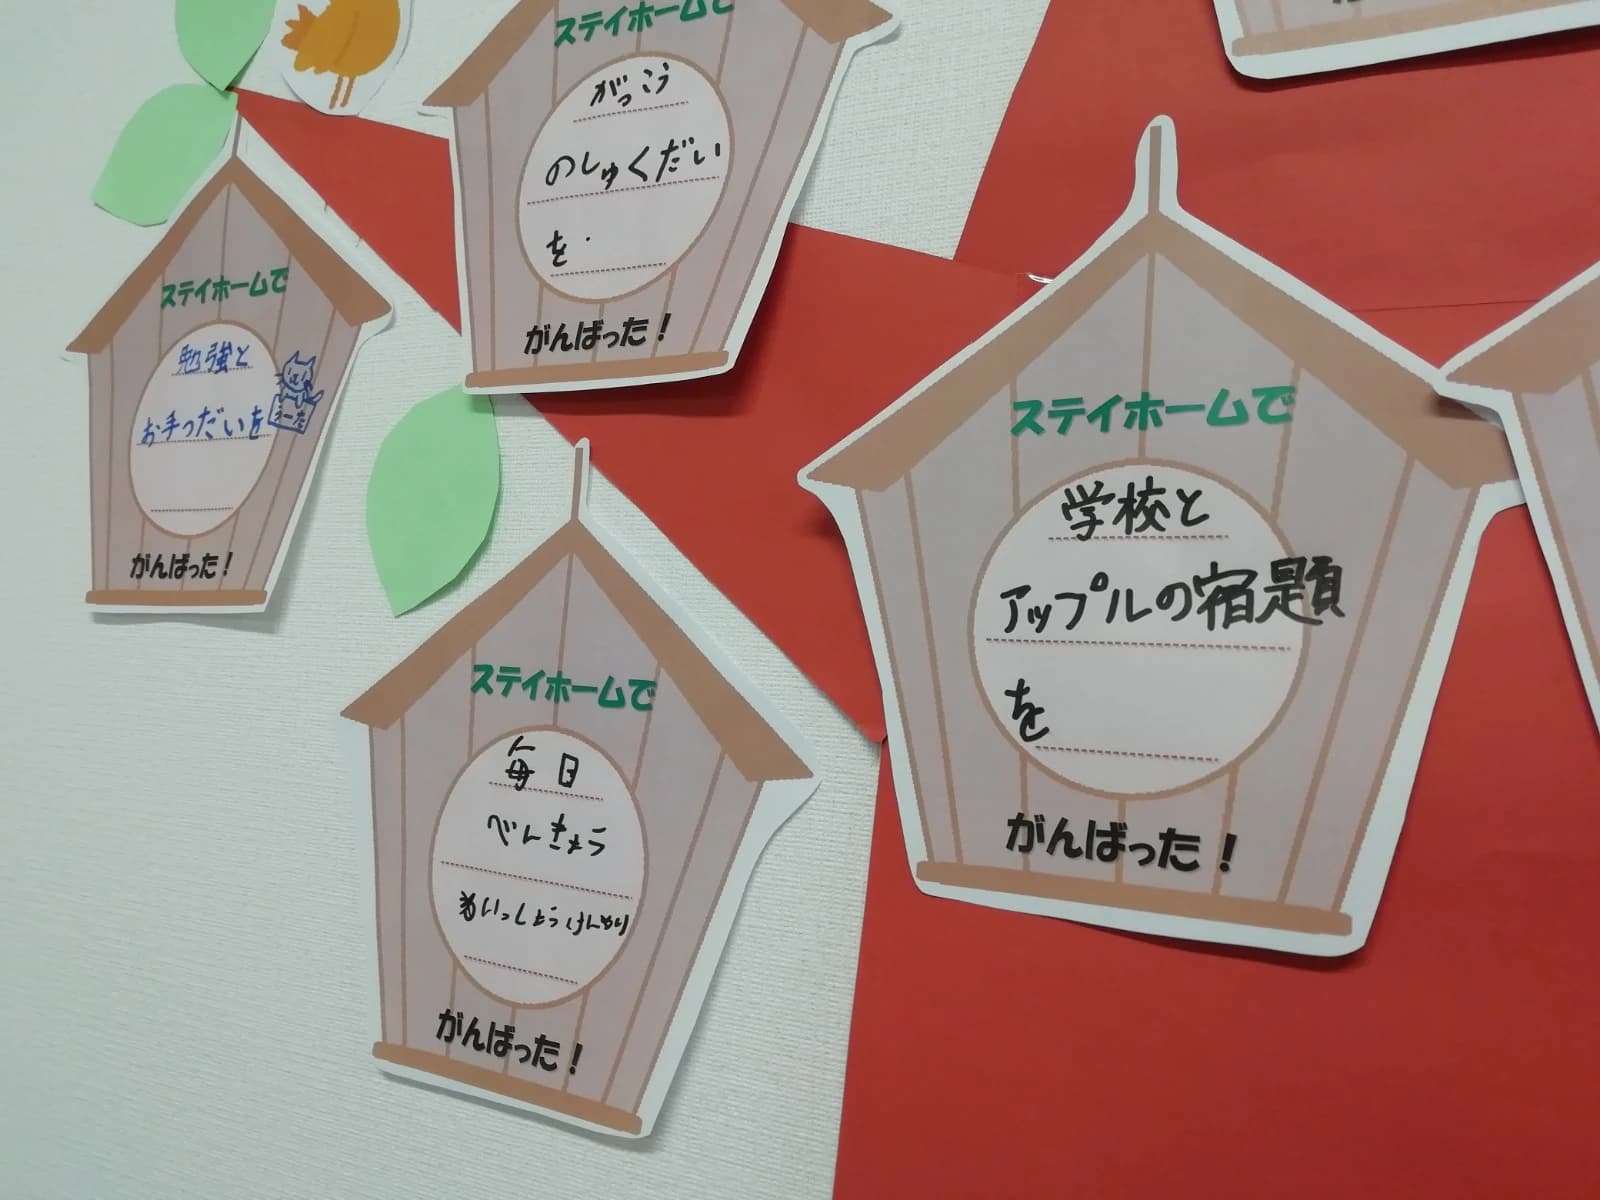 ステイホームで
がっこう
のしゅくだい
を
がんばった！
ステイホームで
勉強と
お手つだいを
がんばった！
ステイホームで
学校と
アップルの宿題
を
がんばった！
ステイホームで
毎日
べんきょう
がんばった！